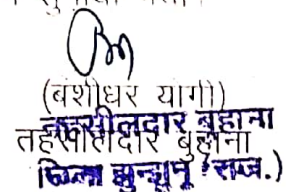 (बंशीधर योगी)
तहसीलदार बुहाना
तहसीलदार बुहाना
जिला झुन्झुनू (राज.)